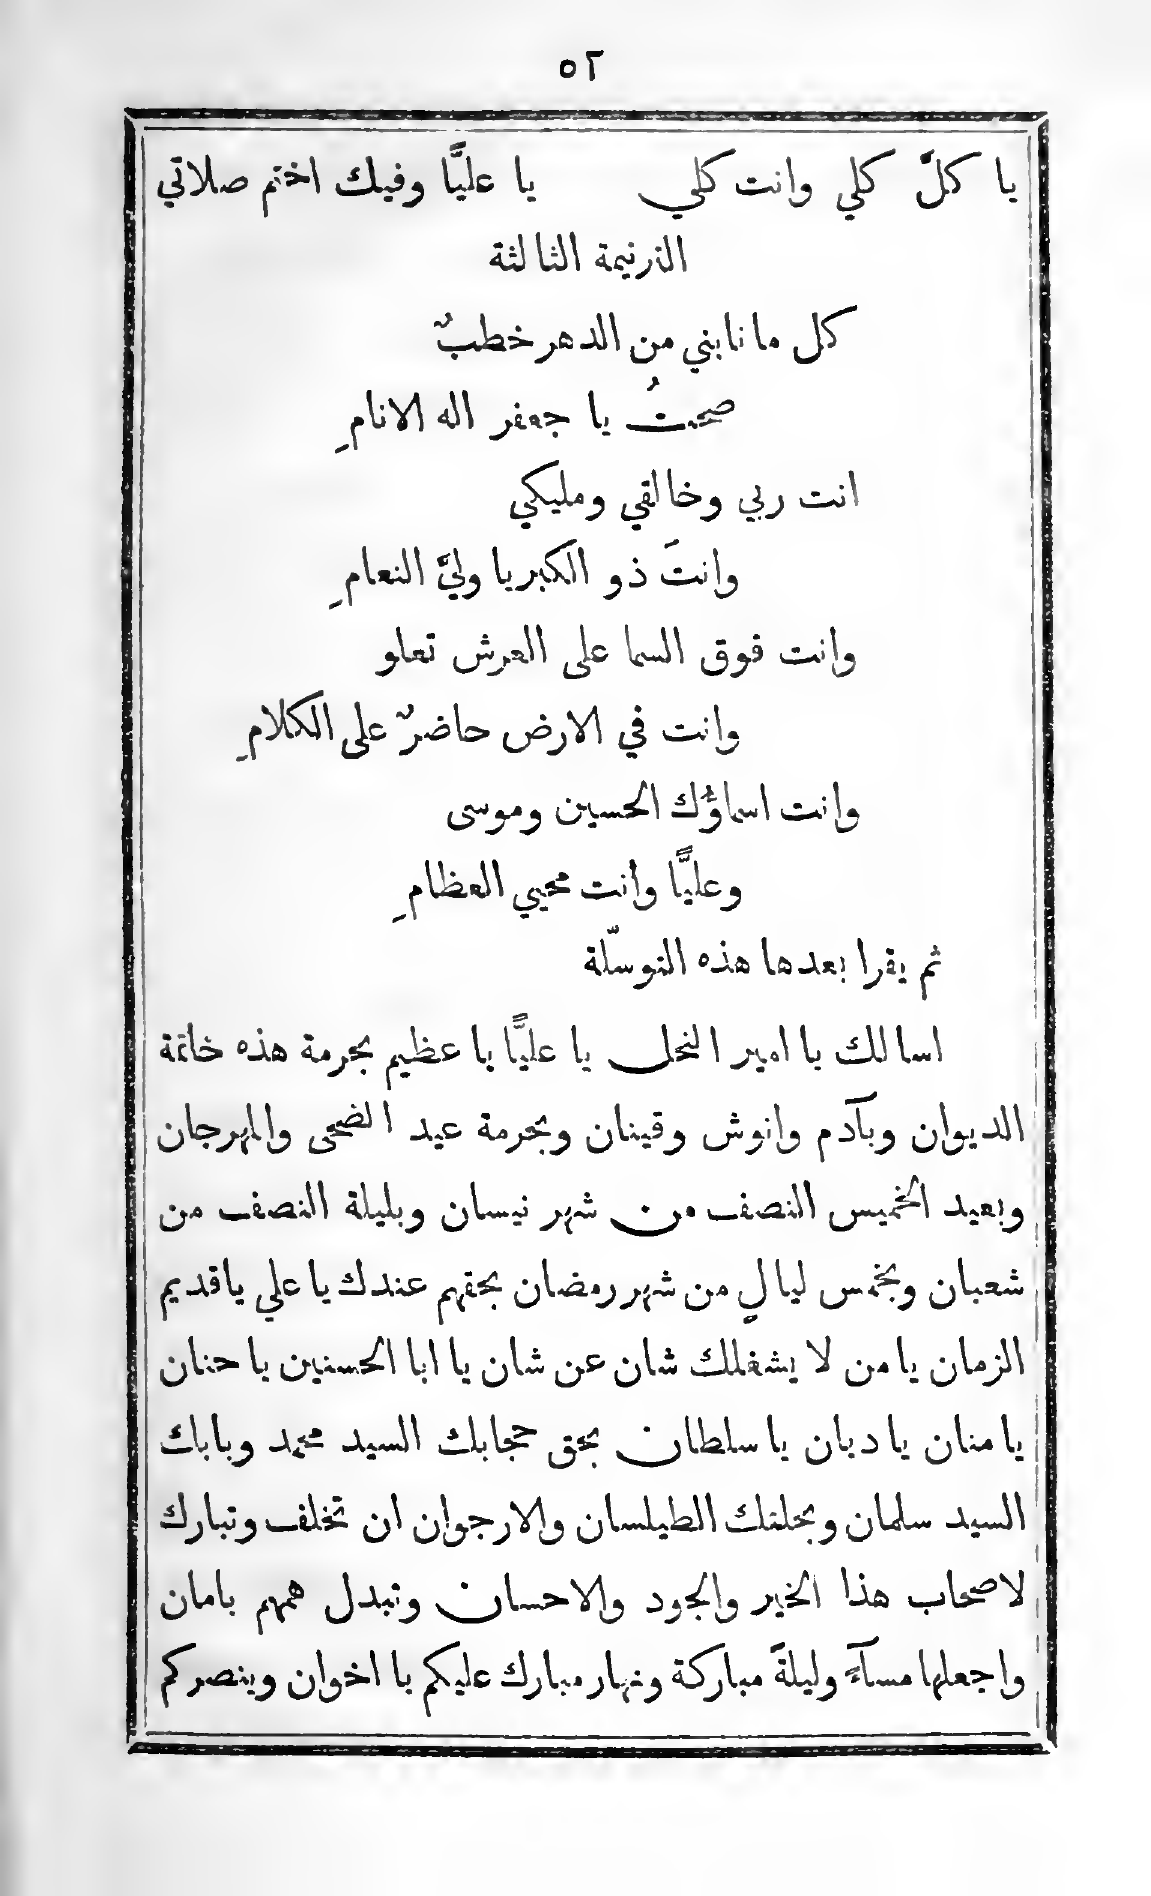 ٥٢
يا كلَّ كلي وانت كلي يا عليًّا وفيك اختم صلاتي
الترنيمة الثالثة
كل ما نابني من الدهر خطبٌ
صحتُ يا جعفر اله الانامِ
انت ربي وخالقي ومليكي
وانتَ ذو الكبريا وليَّ النعامِ
وانت فوق السما على العرش تعلو
وانت في الارض حاضرٌ على الكلامِ
وانت اسماؤُك الحسين وموسى
وعليًّا وانت محيي العظامِ
ثم يقرا بعدها هذه التوسلّة
اسالك يا امير النحل يا عليًّا يا عظيم بحرمة هذه خاتمة
الديوان وبآدم وانوش وقينان وبحرمة عيد الضحى والمهرجان
وبعيد الخميس النصف من شهر نيسان وبليلة النصف من
شعبان وبخمس ليالٍ من شهر رمضان بحقهم عندك يا علي يا قديم
الزمان يا من لا يشغلك شان عن شان يا ابا الحسنين يا حنان
يا منان يا ديان يا سلطان بحق حجابك السيد محمد وبابك
السيد سلمان وبحلتك الطيلسان والارجوان ان تخلف وتبارك
لاصحاب هذا الخير والجود والاحسان وتبدل همهم بامان
واجعلها مسآءً وليلةً مباركة ونهار مبارك عليكم يا اخوان وينصركم